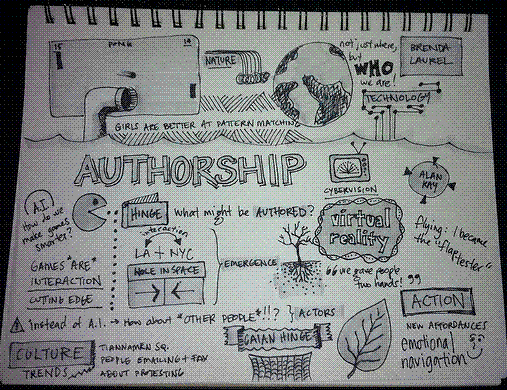 15 PONG 14
NATURE
not just where,
but
WHO
we are!
BRENDA
LAUREL
TECHNOLOGY
GIRLS ARE BETTER AT PATERN MATCHING
AUTHORSHIP
CYBERVISION
ALAN
KAY
A.I.
How do we
make games
smarter?
HINGE what might be AUTHORED?
interaction
LA + NYC
HOLE IN SPACE
EMERGENCE
virtual
reality
"we gave people
two hands!"
flying: I became
the "flaptester"
GAMES *ARE*
INTERACTION
CUTING EDGE
Instead of A.I. → How about *OTHER PEOPLE*!!? } ACTORS
GAIAN HINGE
ACTION
NEW AFFORDANCES
emotional
navigation
CULTURE
TRENDS
TIANNAMEN SQ.
PEOPLE EMAILING + FAX
ABOUT PROTESTING